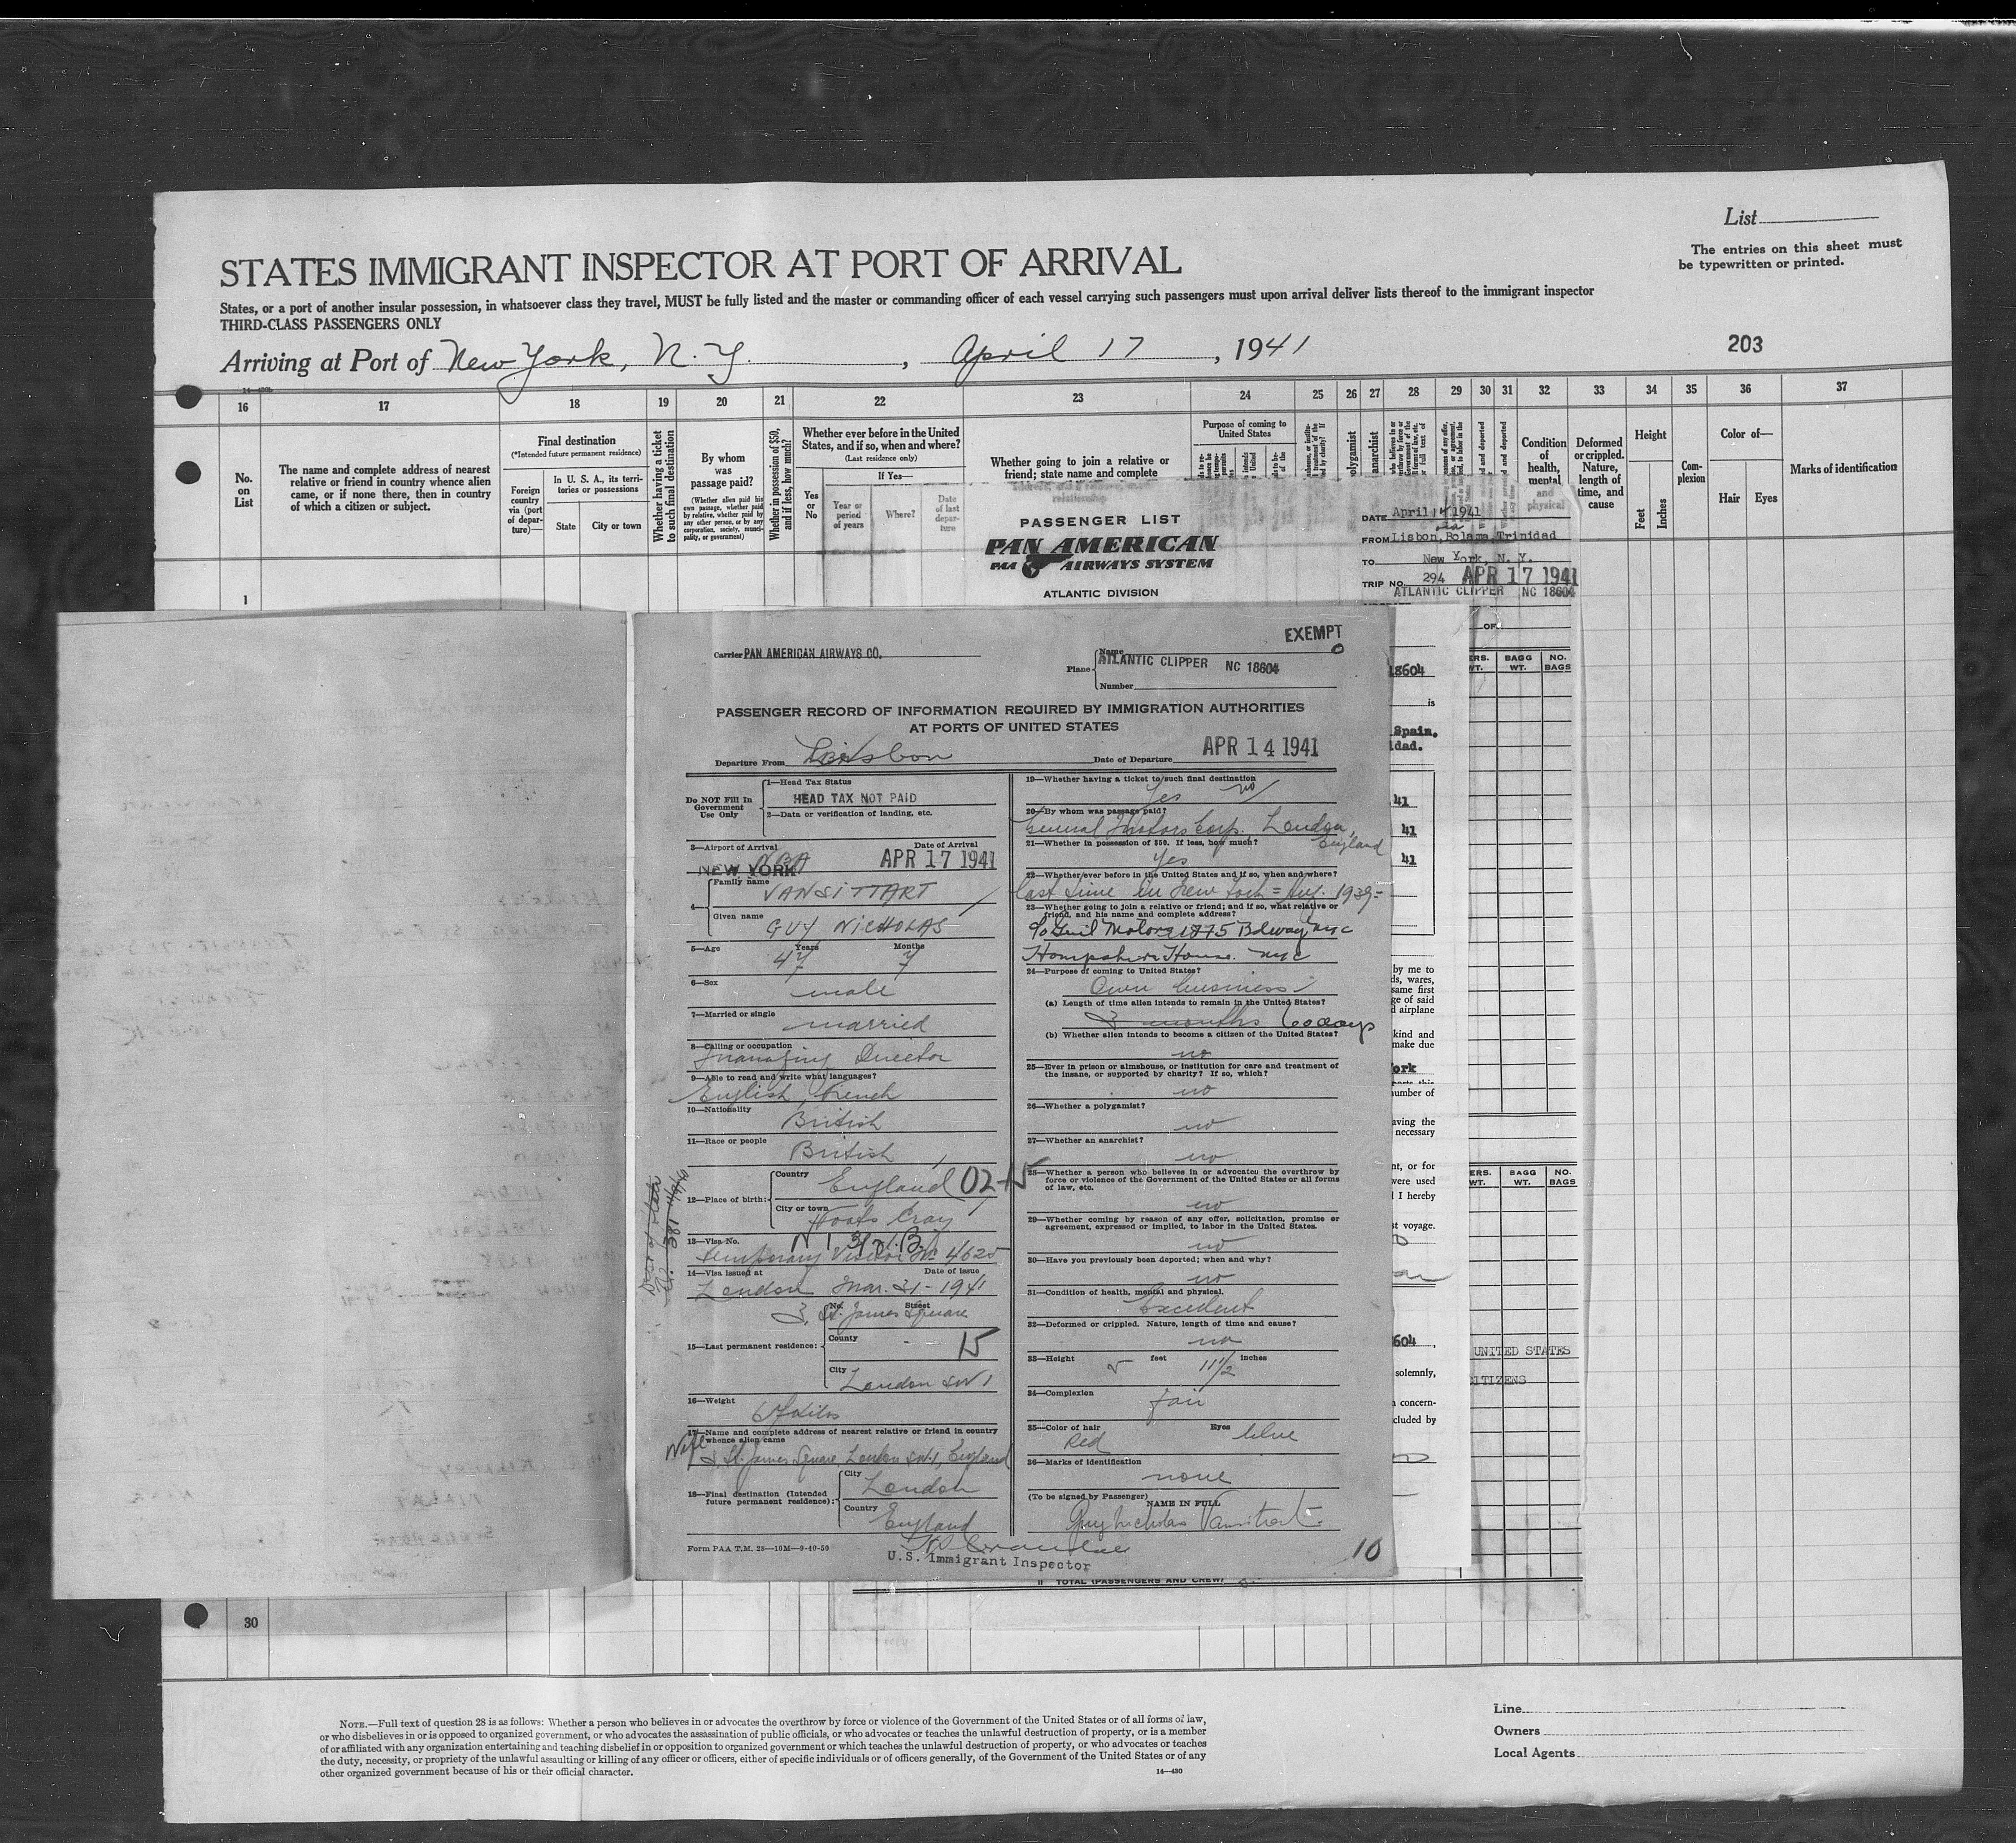 List
The entries on this sheet must
be typewritten or printed.
STATES IMMIGRANT INSPECTOR AT PORT OF ARRIVAL
States, or a port of another insular possession, in whatsoever class they travel, MUST be fully listed and the master or commanding officer of each vessel carrying such passengers must upon arrival deliver lists thereof to the immigrant inspector
THIRD-CLASS PASSENGERS ONLY
Arriving at Port of New York, N.Y. , April 17 , 1941
203
16 17 18 19 20 21 22 23 24 25 26 27 28 29 30 31 32 33 34 35 36 37
No.
on
List
The name and complete address of nearest
relative or friend in country whence alien
came, or if none there, then in country
of which a citizen or subject.
Final destination
(*Intended future permanent residence)
Foreign
country
via (port
of depar-
ture)—
In U. S. A., its terri-
tories or possessions
State
City or town
Whether having a ticket
to such final destination
By whom
was
passage paid?
(Whether alien paid his
own passage, whether paid
by relative, whether paid by
any other person, or by any
corporation, society, munici-
pality, or government)
Whether in possession of $50,
and if less, how much?
Whether ever before in the United
States, and if so, when and where?
(Last residence only)
Yes
or
No
If Yes—
Year or
period
of years
Where?
Date
of last
depar-
ture
Whether going to join a relative or
friend; state name and complete
relationship
Purpose of coming to
United States
Condition
of
health,
mental
and
physical
Deformed
or crippled.
Nature,
length of
time, and
cause
Height
Feet
Inches
Com-
plexion
Color of—
Hair
Eyes
Marks of identification
1
PASSENGER LIST
PAN AMERICAN
PAA AIRWAYS SYSTEM
ATLANTIC DIVISION
DATE April 14 1941
FROM Lisbon, Bolama, Trinidad
TO New York, N. Y.
TRIP NO. 294 APR 17 1941
ATLANTIC CLIPPER NC 18604
OF
BAGG WT.
NO. BAGS
EXEMPT
Carrier PAN AMERICAN AIRWAYS CO.
Plane Name ATLANTIC CLIPPER NC 18604
Number
PASSENGER RECORD OF INFORMATION REQUIRED BY IMMIGRATION AUTHORITIES
AT PORTS OF UNITED STATES
Departure From Lisbon
Date of Departure APR 14 1941
Do NOT Fill In
Government
Use Only
1—Head Tax Status
HEAD TAX NOT PAID
2—Data or verification of landing, etc.
3—Airport of Arrival
NEW YORK
Date of Arrival
APR 17 1941
4—
Family name
VANSITTART
Given name
GUY NICHOLAS
5—Age Years Months
47 7
6—Sex
male
7—Married or single
married
8—Calling or occupation
Managing Director
9—Able to read and write what languages?
English, French
10—Nationality
British
11—Race or people
British
12—Place of birth:
Country
England 02-15
City or town
Foots Cray
13—Visa No.
Temporary Visitor No 4625
14—Visa issued at Date of issue
London Mar. 31 - 1941
15—Last permanent residence:
No. Street
3, St. James Square
County
15
City
London SW1
16—Weight
17—Name and complete address of nearest relative or friend in country
whence alien came
Wife
3, St. James Square, London SW.1, England
18—Final destination (Intended
future permanent residence):
City
London
Country
England
Form PAA T.M. 28—10M—9-40-50
U.S. Immigrant Inspector
19—Whether having a ticket to such final destination
Yes no
20—By whom was passage paid?
General Motors Corp. London,
England
21—Whether in possession of $50. If less, how much?
Yes
22—Whether ever before in the United States and if so, when and where?
last time in New York = Aug. 1939 =
23—Whether going to join a relative or friend; and if so, what relative or
friend, and his name and complete address?
c/o Genl Motors 1775 Bdway nyc
Hampshire House. nyc
24—Purpose of coming to United States?
Own business
(a) Length of time alien intends to remain in the United States?
3 months 60 days
(b) Whether alien intends to become a citizen of the United States?
no
25—Ever in prison or almshouse, or institution for care and treatment of
the insane, or supported by charity? If so, which?
no
26—Whether a polygamist?
no
27—Whether an anarchist?
no
28—Whether a person who believes in or advocates the overthrow by
force or violence of the Government of the United States or all forms
of law, etc.
no
29—Whether coming by reason of any offer, solicitation, promise or
agreement, expressed or implied, to labor in the United States.
no
30—Have you previously been deported; when and why?
no
31—Condition of health, mental and physical.
Excellent
32—Deformed or crippled. Nature, length of time and cause?
no
33—Height 5 feet 11 1/2 inches
34—Complexion
fair
35—Color of hair Eyes
Red blue
36—Marks of identification
none
(To be signed by Passenger)
NAME IN FULL
Guy Nicholas Vansittart
10
UNITED STATES
CITIZENS
TOTAL (PASSENGERS AND CREW)
30
NOTE.—Full text of question 28 is as follows: Whether a person who believes in or advocates the overthrow by force or violence of the Government of the United States or of all forms of law,
or who disbelieves in or is opposed to organized government, or who advocates the assassination of public officials, or who advocates or teaches the unlawful destruction of property, or is a member
of or affiliated with any organization entertaining and teaching disbelief in or opposition to organized government or which teaches the unlawful destruction of property, or who advocates or teaches
the duty, necessity, or propriety of the unlawful assaulting or killing of any officer or officers, either of specific individuals or of officers generally, of the Government of the United States or of any
other organized government because of his or their official character.
14—430
Line
Owners
Local Agents